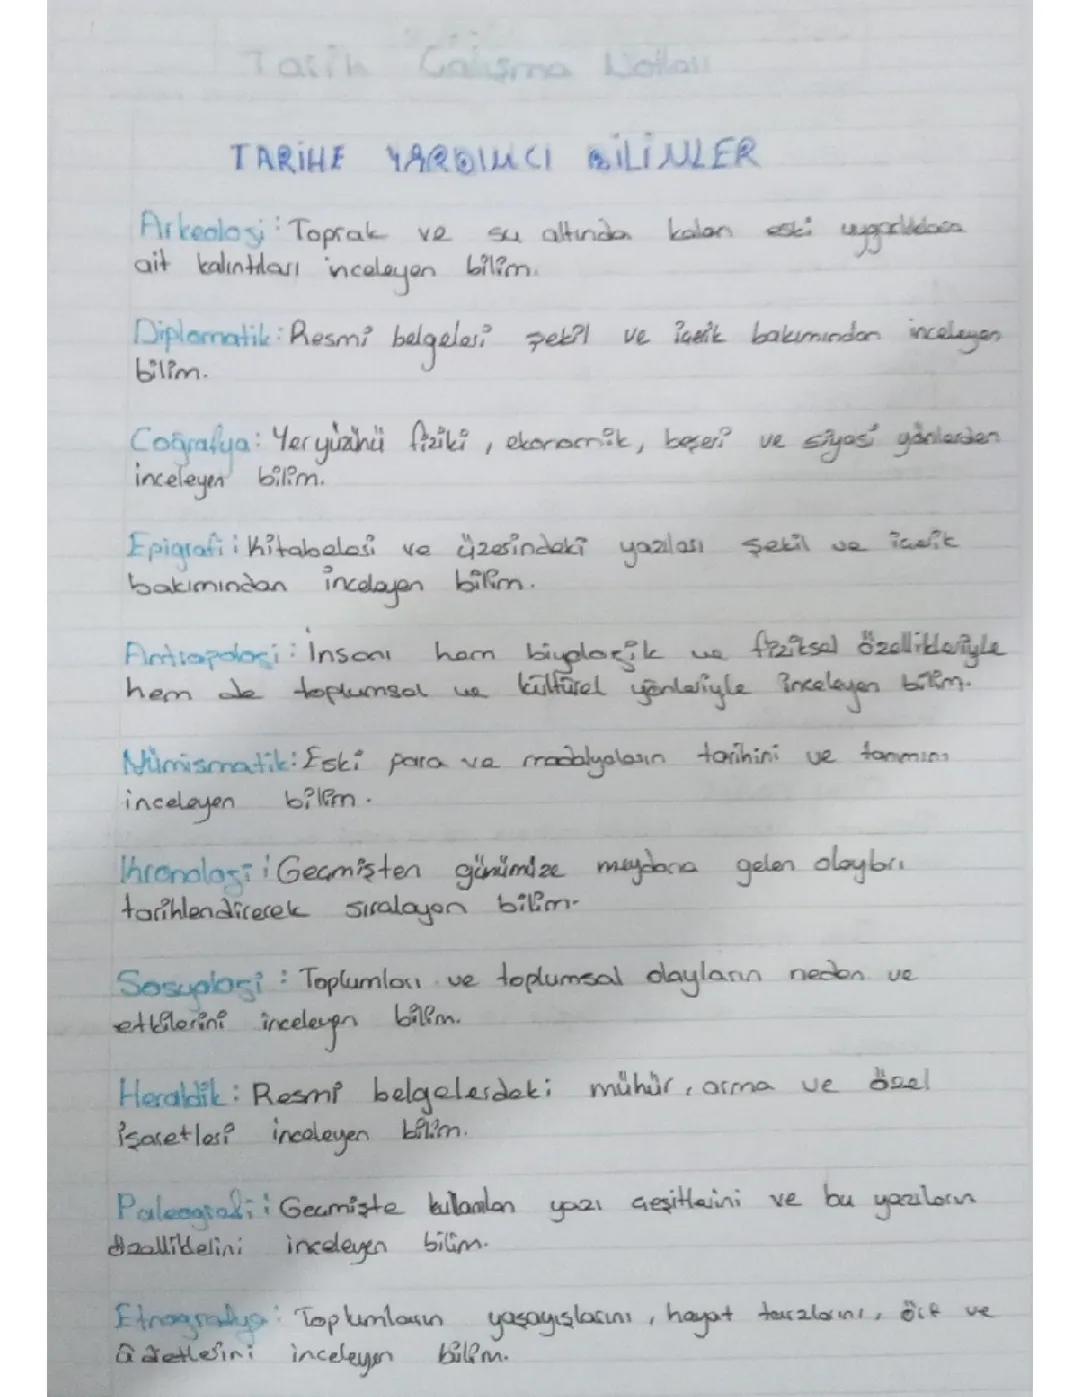 Tarih Çalışma Notları
TARİHE YARDIMCI BİLİMLER
Arkeoloji: Toprak ve su altında kalan eski uygarlıklara
ait kalıntıları inceleyen bilim.
Diplomatik: Resmi belgeleri şekil ve içerik bakımından inceleyen
bilim.
Coğrafya: Yeryüzünü fiziki, ekonomik, beşeri ve siyasi yönlerden
inceleyen bilim.
Epigrafi: Kitabeleri ve üzerindeki yazıları şekil ve içerik
bakımından inceleyen bilim.
Antropoloji: İnsanı hem biyolojik ve fiziksel özellikleriyle
hem de toplumsal ve kültürel yönleriyle inceleyen bilim.
Nümismatik: Eski para ve madalyaların tarihini ve tanımını
inceleyen bilim.
Kronoloji: Geçmişten günümüze meydana gelen olayları
tarihlendirerek sıralayan bilim.
Sosyoloji: Toplumları ve toplumsal olayların neden ve
etkilerini inceleyen bilim.
Heraldik: Resmi belgelerdeki mühür, arma ve özel
işaretleri inceleyen bilim.
Paleografi: Geçmişte kullanılan yazı çeşitlerini ve bu yazıların
özelliklerini inceleyen bilim.
Etnografya: Toplumların yaşayışlarını, hayat tarzlarını, örf ve
adetlerini inceleyen bilim.